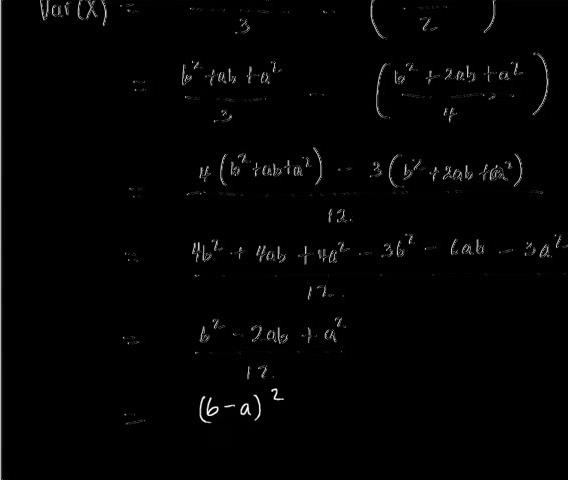 Var(X) = / 3 - ( / 2 )
= b² + ab + a² / 3 - ( b² + 2ab + a² / 4 )
= 4(b² + ab + a²) - 3(b² + 2ab + a²) / 12
= 4b² + 4ab + 4a² - 3b² - 6ab - 3a² / 12
= b² - 2ab + a² / 12
= (b-a)²